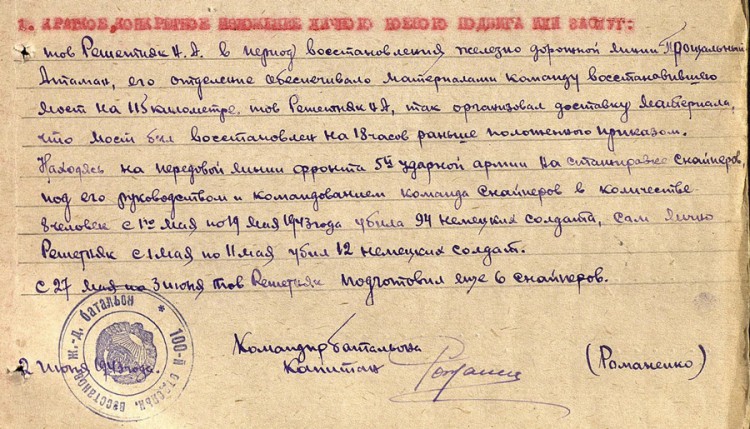 1. КРАТКОЕ, КОНКРЕТНОЕ ИЗЛОЖЕНИЕ ЛИЧНОГО БОЕВОГО ПОДВИГА ИЛИ ЗАСЛУГ:
тов Решетняк Н.А. в период восстановления железно дорожной линии Прощальный
Атаман, его отделение обеспечивало материалами команду восстановившего
мост на 115 километре. тов Решетняк Н.А, так организовал доставку материала,
что мост был восстановлен на 18 часов раньше положенного приказом.
Находясь на передовой линии фронта 5й ударной армии на стажировке снайперов
под его руководством и командованием команда снайперов в количестве
8 человек с 1го мая по 19 мая 1943 года убила 94 немецких солдата, сам лично
Решетняк с 1 мая по 11 мая убил 12 немецких солдат.
с 27 мая по 3 июня тов Решетняк подготовил еще 6 снайперов.
Командир батальона
Капитан (Романенко)
2 июня 1943 года.
100-й отдельн. восстанов. ж.-д. батальон